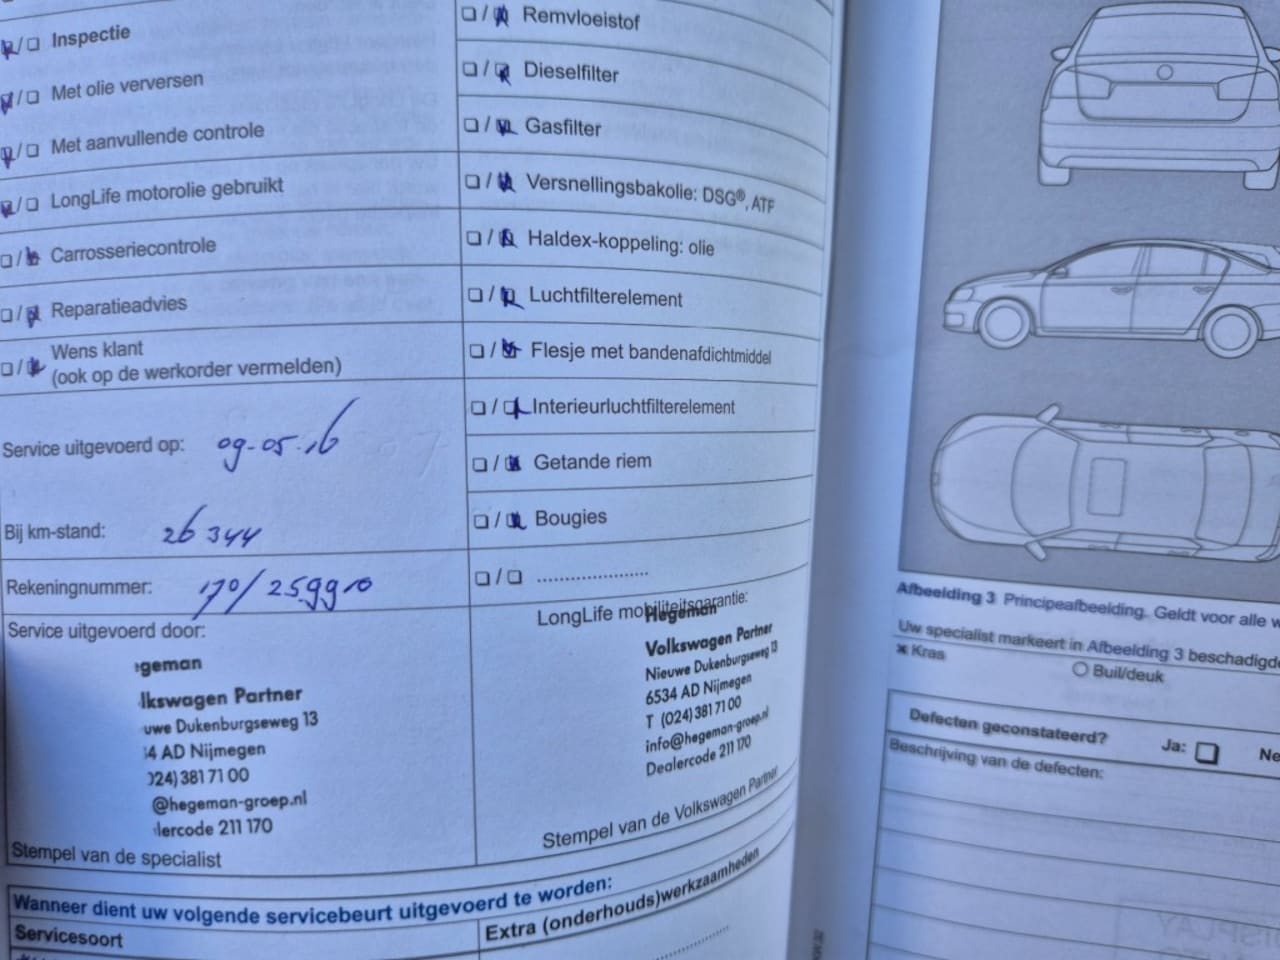 Inspectie
Met olie verversen
Met aanvullende controle
LongLife motorolie gebruikt
Carrosseriecontrole
Reparatieadvies
Wens klant
(ook op de werkorder vermelden)
Service uitgevoerd op: 09-05-16
Bij km-stand: 26 344
Rekeningnummer: 170/259910
Service uitgevoerd door:
egeman
lkswagen Partner
uwe Dukenburgseweg 13
4 AD Nijmegen
024) 381 71 00
@hegeman-groep.nl
lercode 211 170
Stempel van de specialist
Remvloeistof
Dieselfilter
Gasfilter
Versnellingsbakolie: DSG®, ATF
Haldex-koppeling: olie
Luchtfilterelement
Flesje met bandenafdichtmiddel
Interieurluchtfilterelement
Getande riem
Bougies
LongLife mobiliteitsgarantie:
Hegeman
Volkswagen Partner
Nieuwe Dukenburgseweg 13
6534 AD Nijmegen
T (024) 381 71 00
info@hegeman-groep.nl
Dealercode 211 170
Stempel van de Volkswagen Partner
Wanneer dient uw volgende servicebeurt uitgevoerd te worden:
Servicesoort
Extra (onderhouds)werkzaamheden
Afbeelding 3 Principeafbeelding. Geldt voor alle
Uw specialist markeert in Afbeelding 3 beschadigde
Kras
Buil/deuk
Defecten geconstateerd? Ja: Ne
Beschrijving van de defecten: